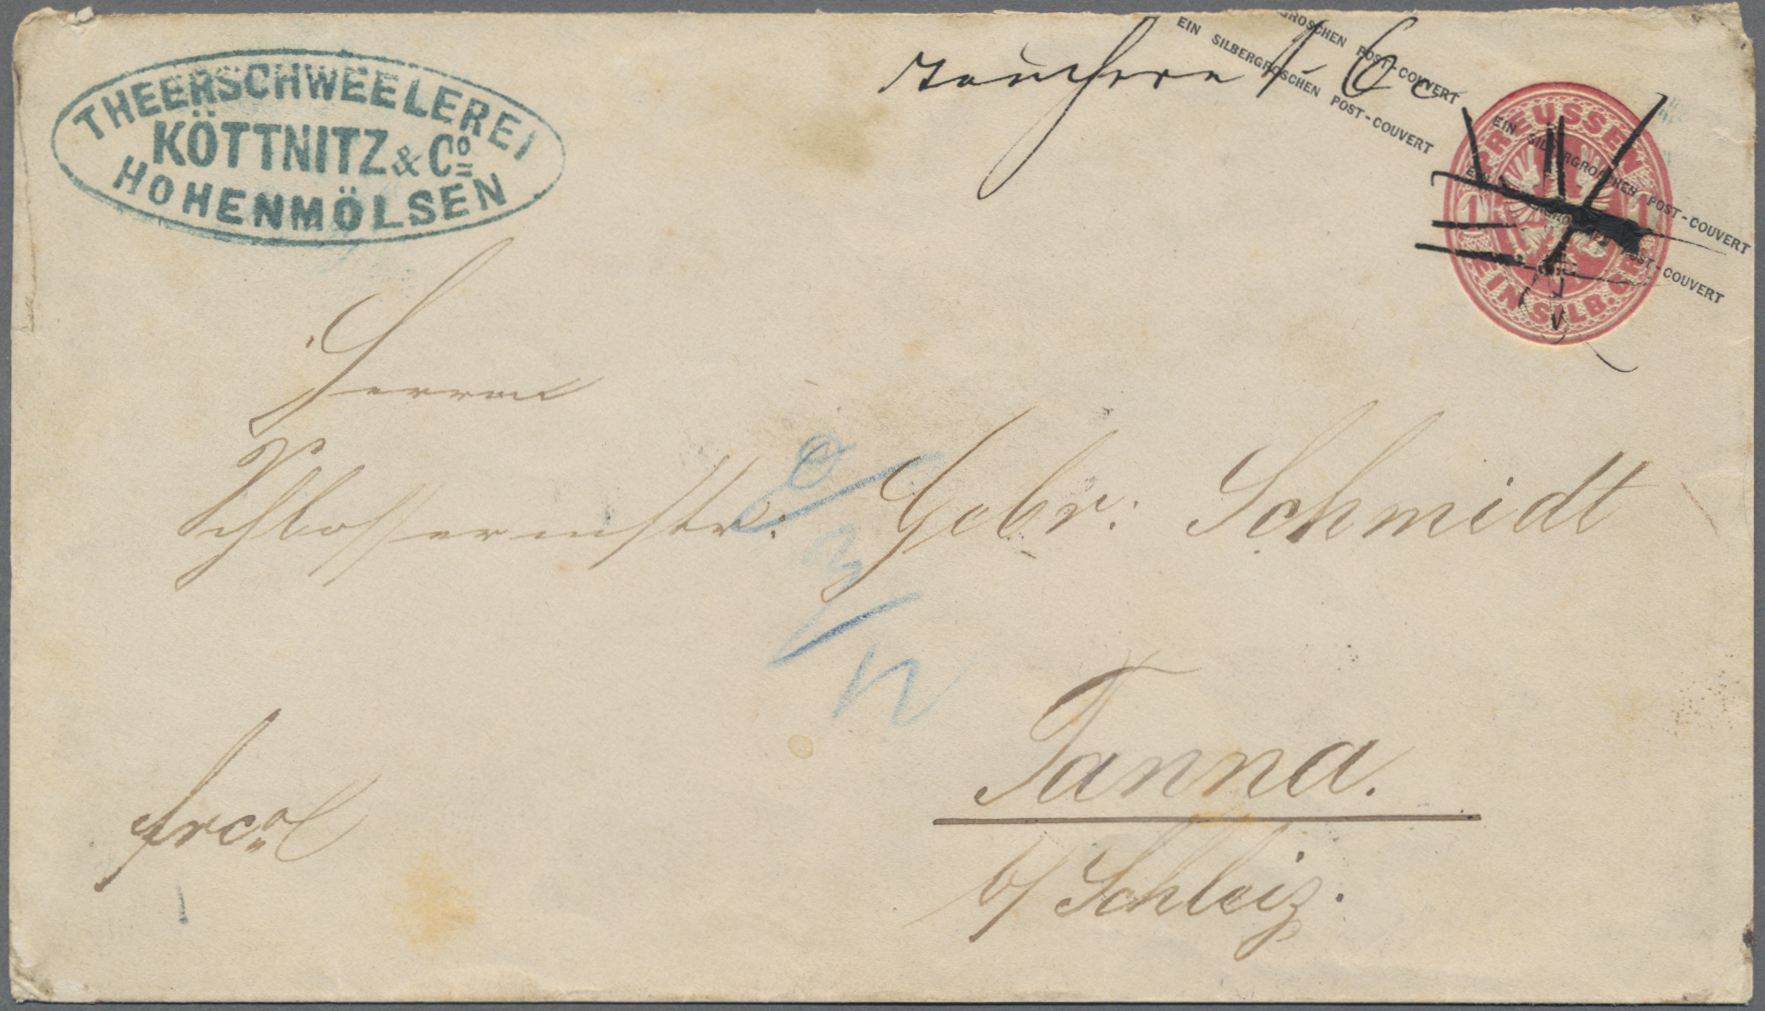 THEERSCHWEELEREI
KÖTTNITZ & Co
HOHENMÖLSEN
EIN SILBERGROSCHEN POST-COUVERT
GROSCHEN POST-COUVERT
EIN SILBERGROSCHEN POST-COUVERT
EIN SILBERGROSCHEN POST-COUVERT
PREUSSEN
1 1
EIN SILB. GR.
Herrn
Schlossermstr: Gebr: Schmidt
Tanna.
b/ Schleiz.